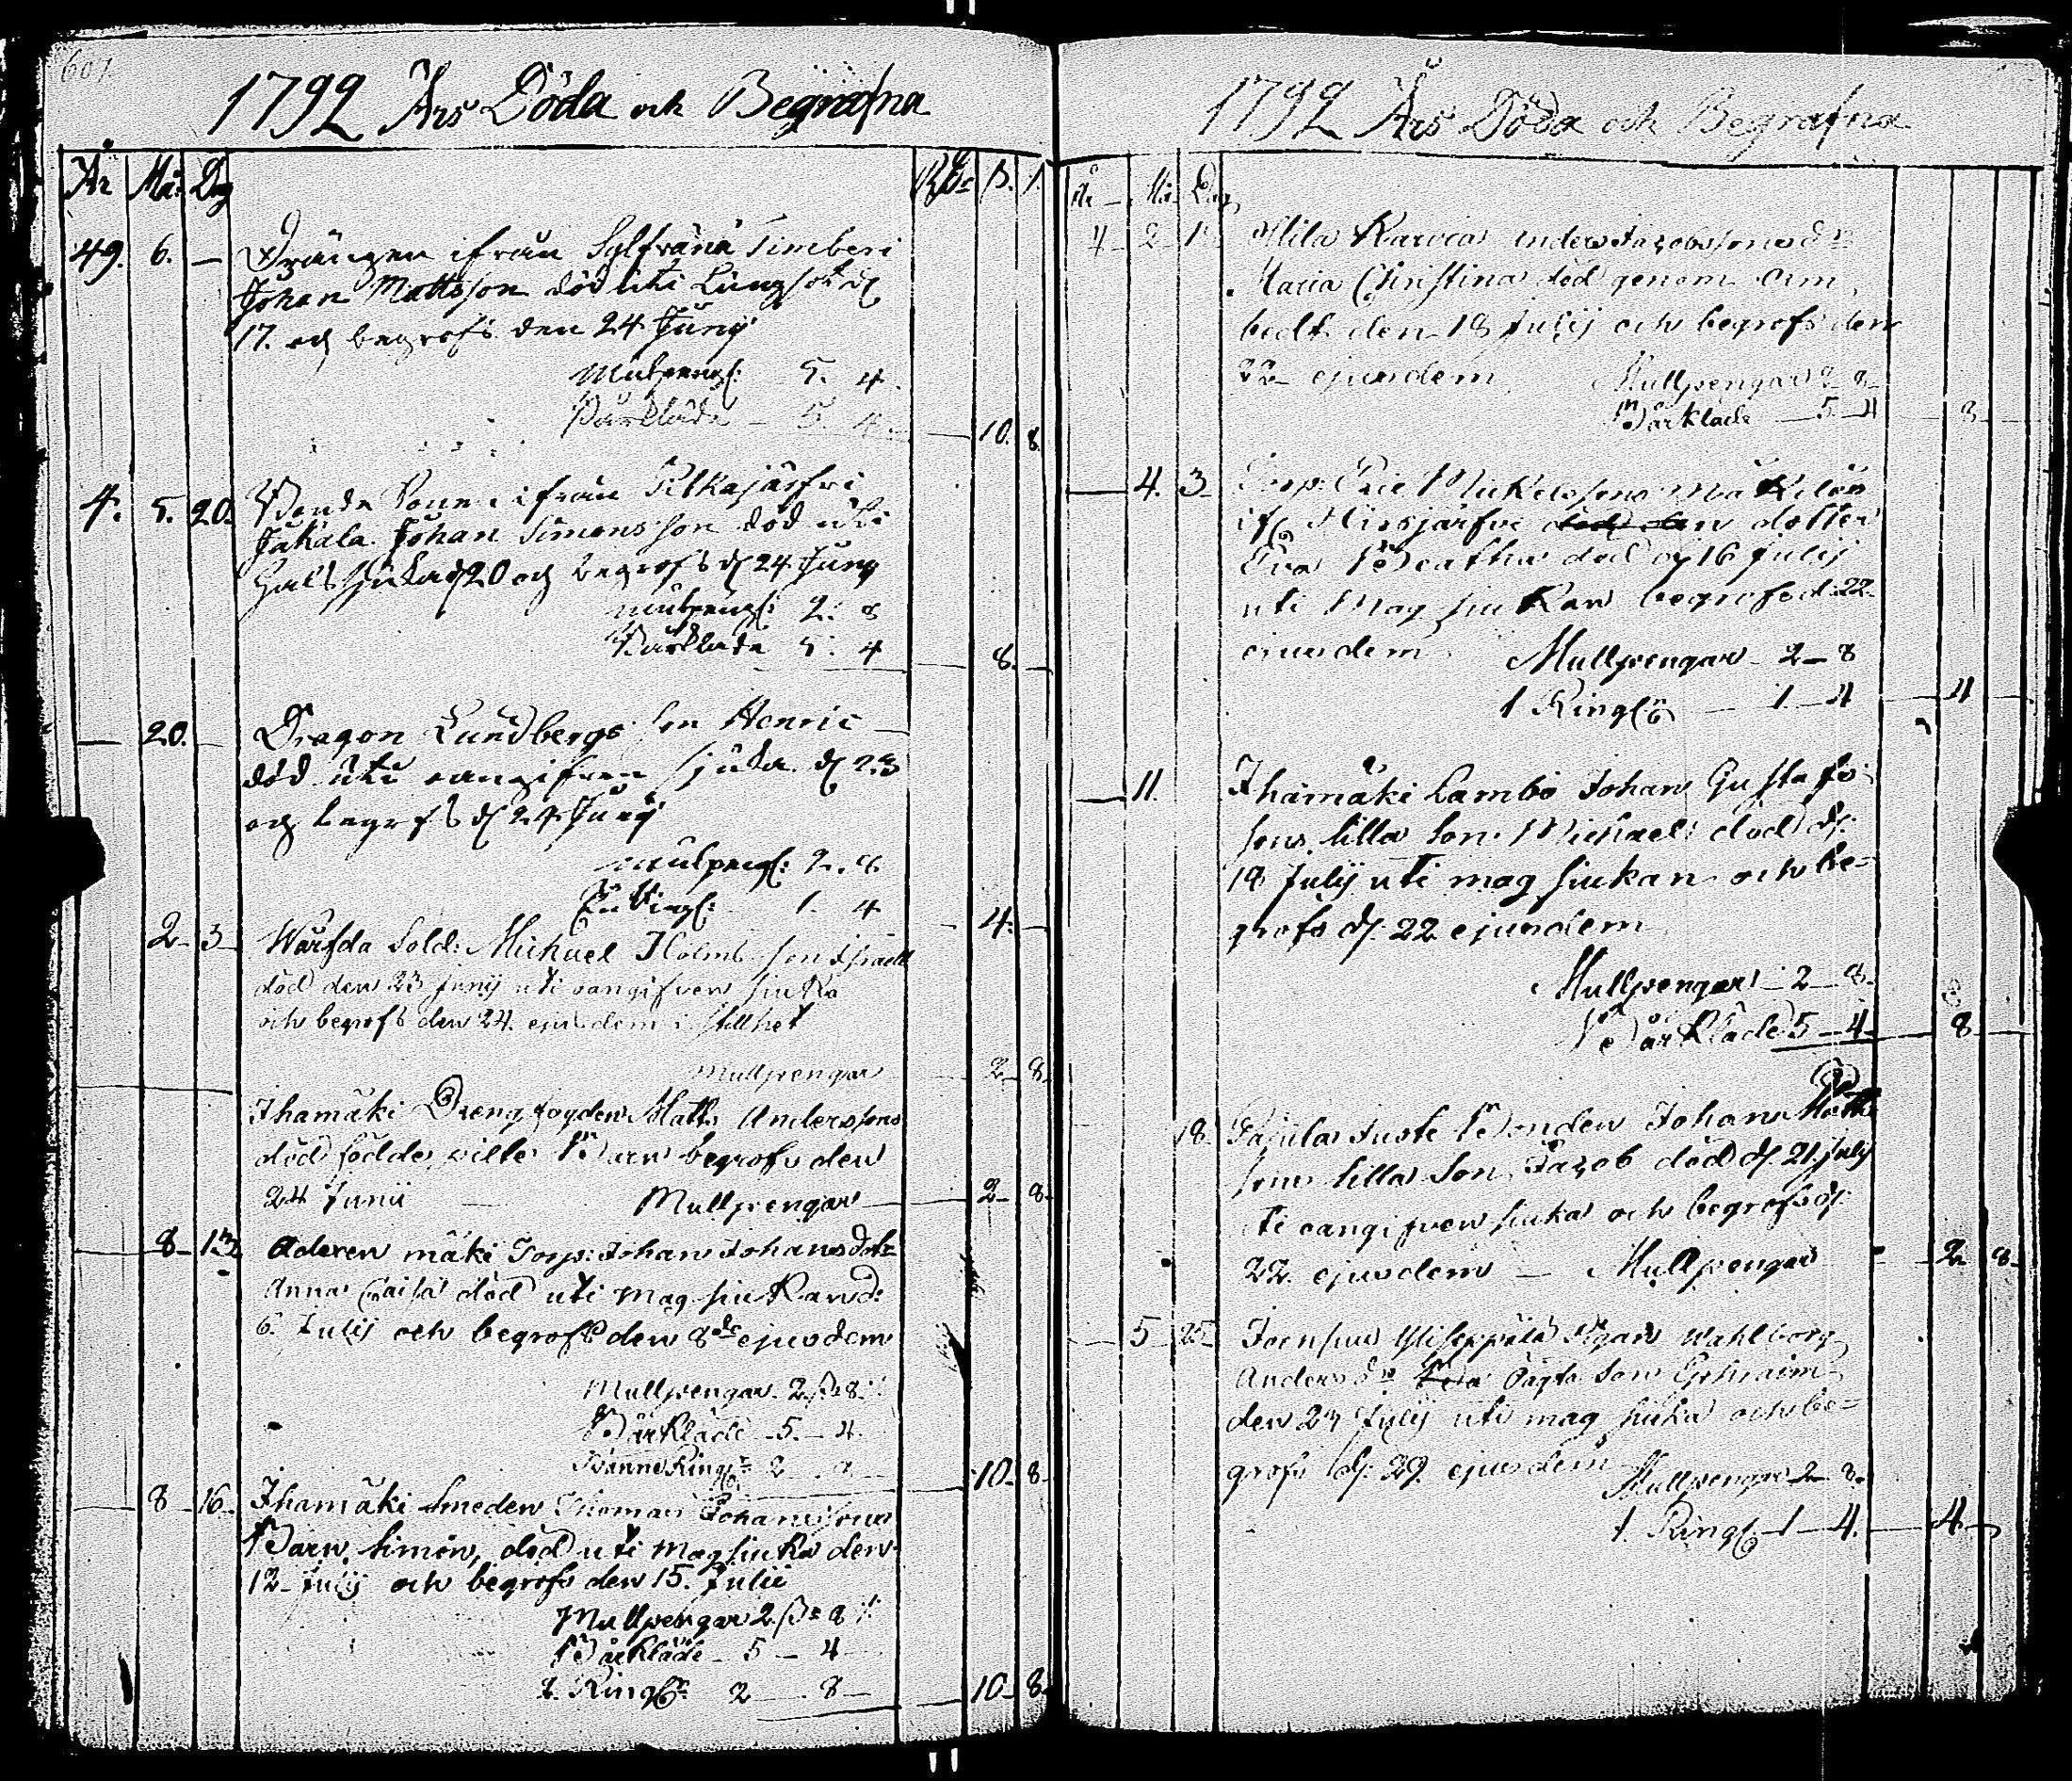 607
1792 Års Döda och Begrafna
År Må: Dag Rd: ß. r.
49. 6. — Drängen ifrån Timberi
Johan Mattsson död uti Lungsot d
17. och begrofs den 24 Junij
Mulpeng: 5. 4.
Bårkläde — 5. 4. — 10. 8.
4. 5. 20. Bonde Sone ifrån Pilkajärfvi
Jakala Johan Simonsson död uti
Halssjuka d 20 och begrofs d 24 Junij
Mulpeng: 2. 8
Bårkläde 5. 4 — 8. —
— 20. — Dragon Lundbergs Son Henric
död uti oangifven sjuka d 23
och begrofs d 24 Junij
Mulpeng: 2. 8.
En Ring: 1. 4 — 4. —
2 3 Wärfda Sold: Michael Holmb. son Israel
död den 23 Junij uti oangifven siuka
och begrofs den 24. ejusdem i stillhet
Mullpengar 2 8
Ihamäki Drengfogden Matts Anderssons
död födde Barn begrofs den
24 Junii — Mullpengar — 2 8
8 13 mäki Torp: Johan Johans dotr
Anna Caisa död uti mag siukan d:
6. Julij och begrofs den 8de ejusdem
Mullpengar. 2 ß 8
Bårkläde 5. 4.
Ring 2 8 10 8
8 16 Ihamäki Smeden Thomas Johanssons
Barn, Simon, död uti mag siuka den
12 Julij och begrofs den 15. Julii
Mullpengar 2 ß 8
Bårkläde 5 4
2. Ring 2 8 — 10 8
1792 Års Döda och Begrafna
År Må Dag
4 2 Karvia Anders Jacobssons dr
Maria Christina död genom
den 18 Julij och begrofs den
22 ejusdem Mullpengar 2 8
Bårkläde — 5 4 8
— 4. 3 Torp. Eric Mickelssons
Hirsjärfvi dotter
Eva Beatha död d 16 Julij
uti Mag siukan begrofs d. 22
ejusdem Mullpengar 2 8
1 Ring — 1 4 — 4
— 11. Ihamäki Lambo Johan Gustafs
sons lilla Son Michael död d:
18 Julij uti mag siukan och be=
grofs d: 22 ejusdem
Mullpengar 2 8.
Bårkläde 5 4 — 8
18 Bonden Johan Matts
sons lilla Son Jacob död d: 21 Julij
uti oangifven siuka och begrofs d:
22. ejusdem — Mullpengar 2 8
— 5 25 Joensuu Pigan Wahlborg
Anders dr oägta Son Ephraim
den 23 Julij uti mag siuka och be=
grofs d: 29. ejusdem
Mullpengar 2 8.
1. Ring 1 4. — 4